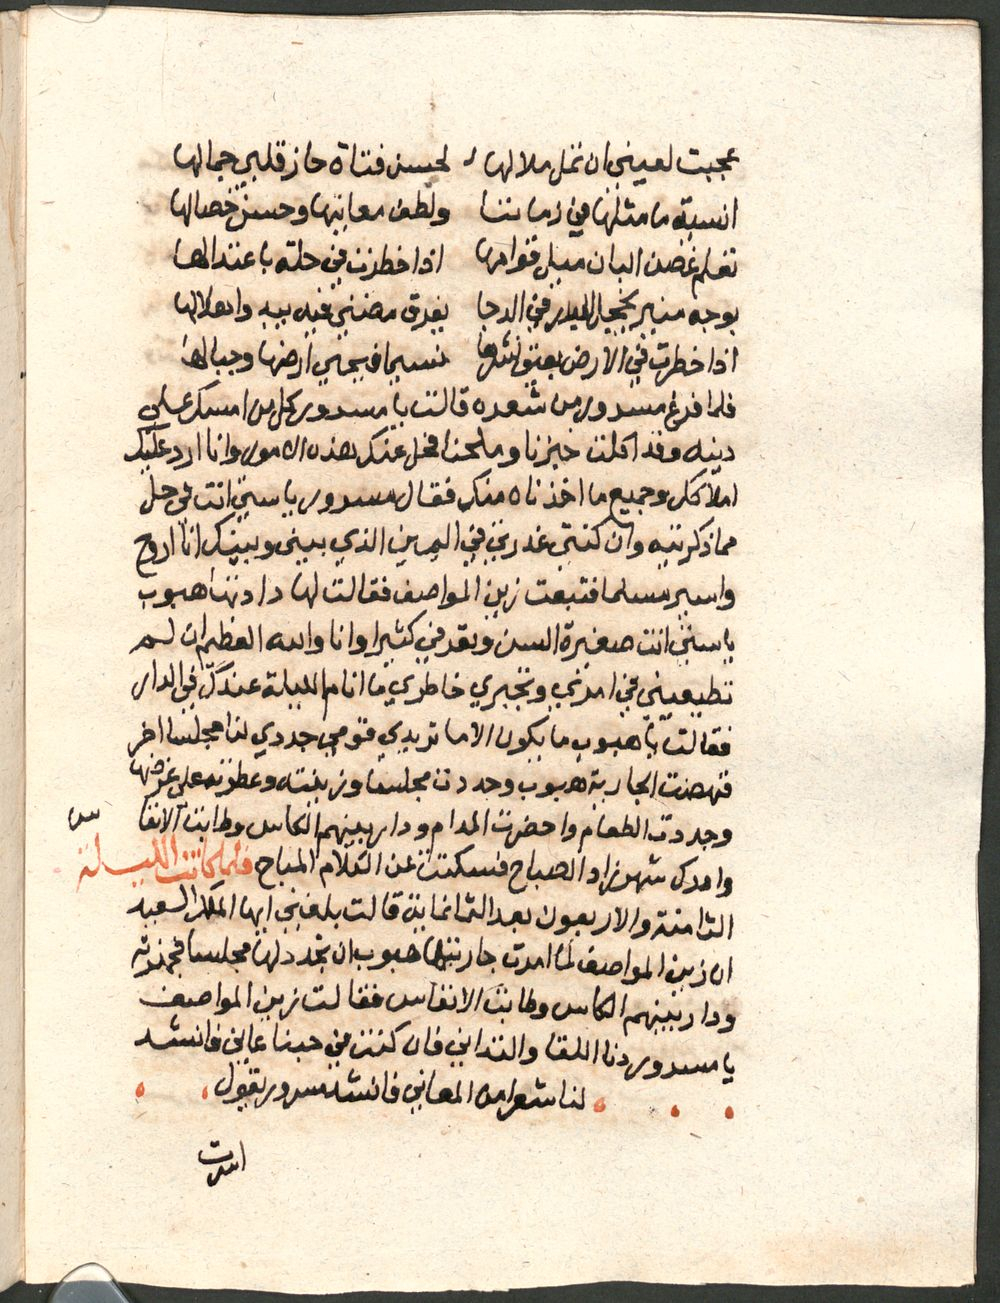 عجبت لعيني ان تمل ملالها لحسن فتاة حاز قلبي جمالها
انسية ما مثلها في زماننا ولطف معانيها وحسن خصالها
تعلم غصن البان ميل قوامها اذا خطرت في حلة باعتدالها
بوجه منير يخجل البدر في الدجا يفرق مضني فيه بيه وا
اذا خطرت في الارض يعبق نشرها نسيما في ارضها وجبالها
فلما فرغ مسرور من شعره قالت يا مسرور كل من امسك علي
دينه وقد اكلت خبزنا وملحنا فخل عنك هذه الامور وانا ارد عليك
املاكك وجميع ما اخذناه منك فقال مسرور يا ستي انت في حل
مما ذكرتيه وان كنتي غدرتي في اليمين الذي بيني وبينك انا اروح
واسير مسلما فتبعت زين المواصف فقالت لها دادتها هبوب
يا ستي انت صغيرة السن وتعرفي كثيرا وانا والله العظيم ان لم
تطيعيني في امرتي وتجبري خاطري ما انام الليلة عندك في الدار
فقالت يا هبوب ما يكون الا ما تريدي قومي جددي لنا مجلسا اخر
فنهضت الجارية هبوب وجددت مجلسا وزينته وعطرته علي غرضها
وجددت الطعام واحضرت المدام ودار بينهم الكاس وطابت الانفاس
وادرك شهرزاد الصباح فسكتت عن الكلام المباح فلما كانت الليلة
الثامنة والاربعون بعد الثمانماية قالت بلغني ايها الملك السعيد
ان زين المواصف لما امرت جاريتها هبوب ان تجدد لها مجلسا فجددته
ودار بينهم الكاس وطابت الانفاس فقالت زين المواصف
يا مسرور دنا اللقا والتداني فان كنت في حبنا عاني فانشد
لنا شعرا من المعاني فانشد مسرور يقول
اسرت